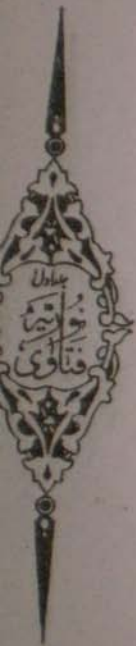 جلد اول
فتاویٰ نوریہ